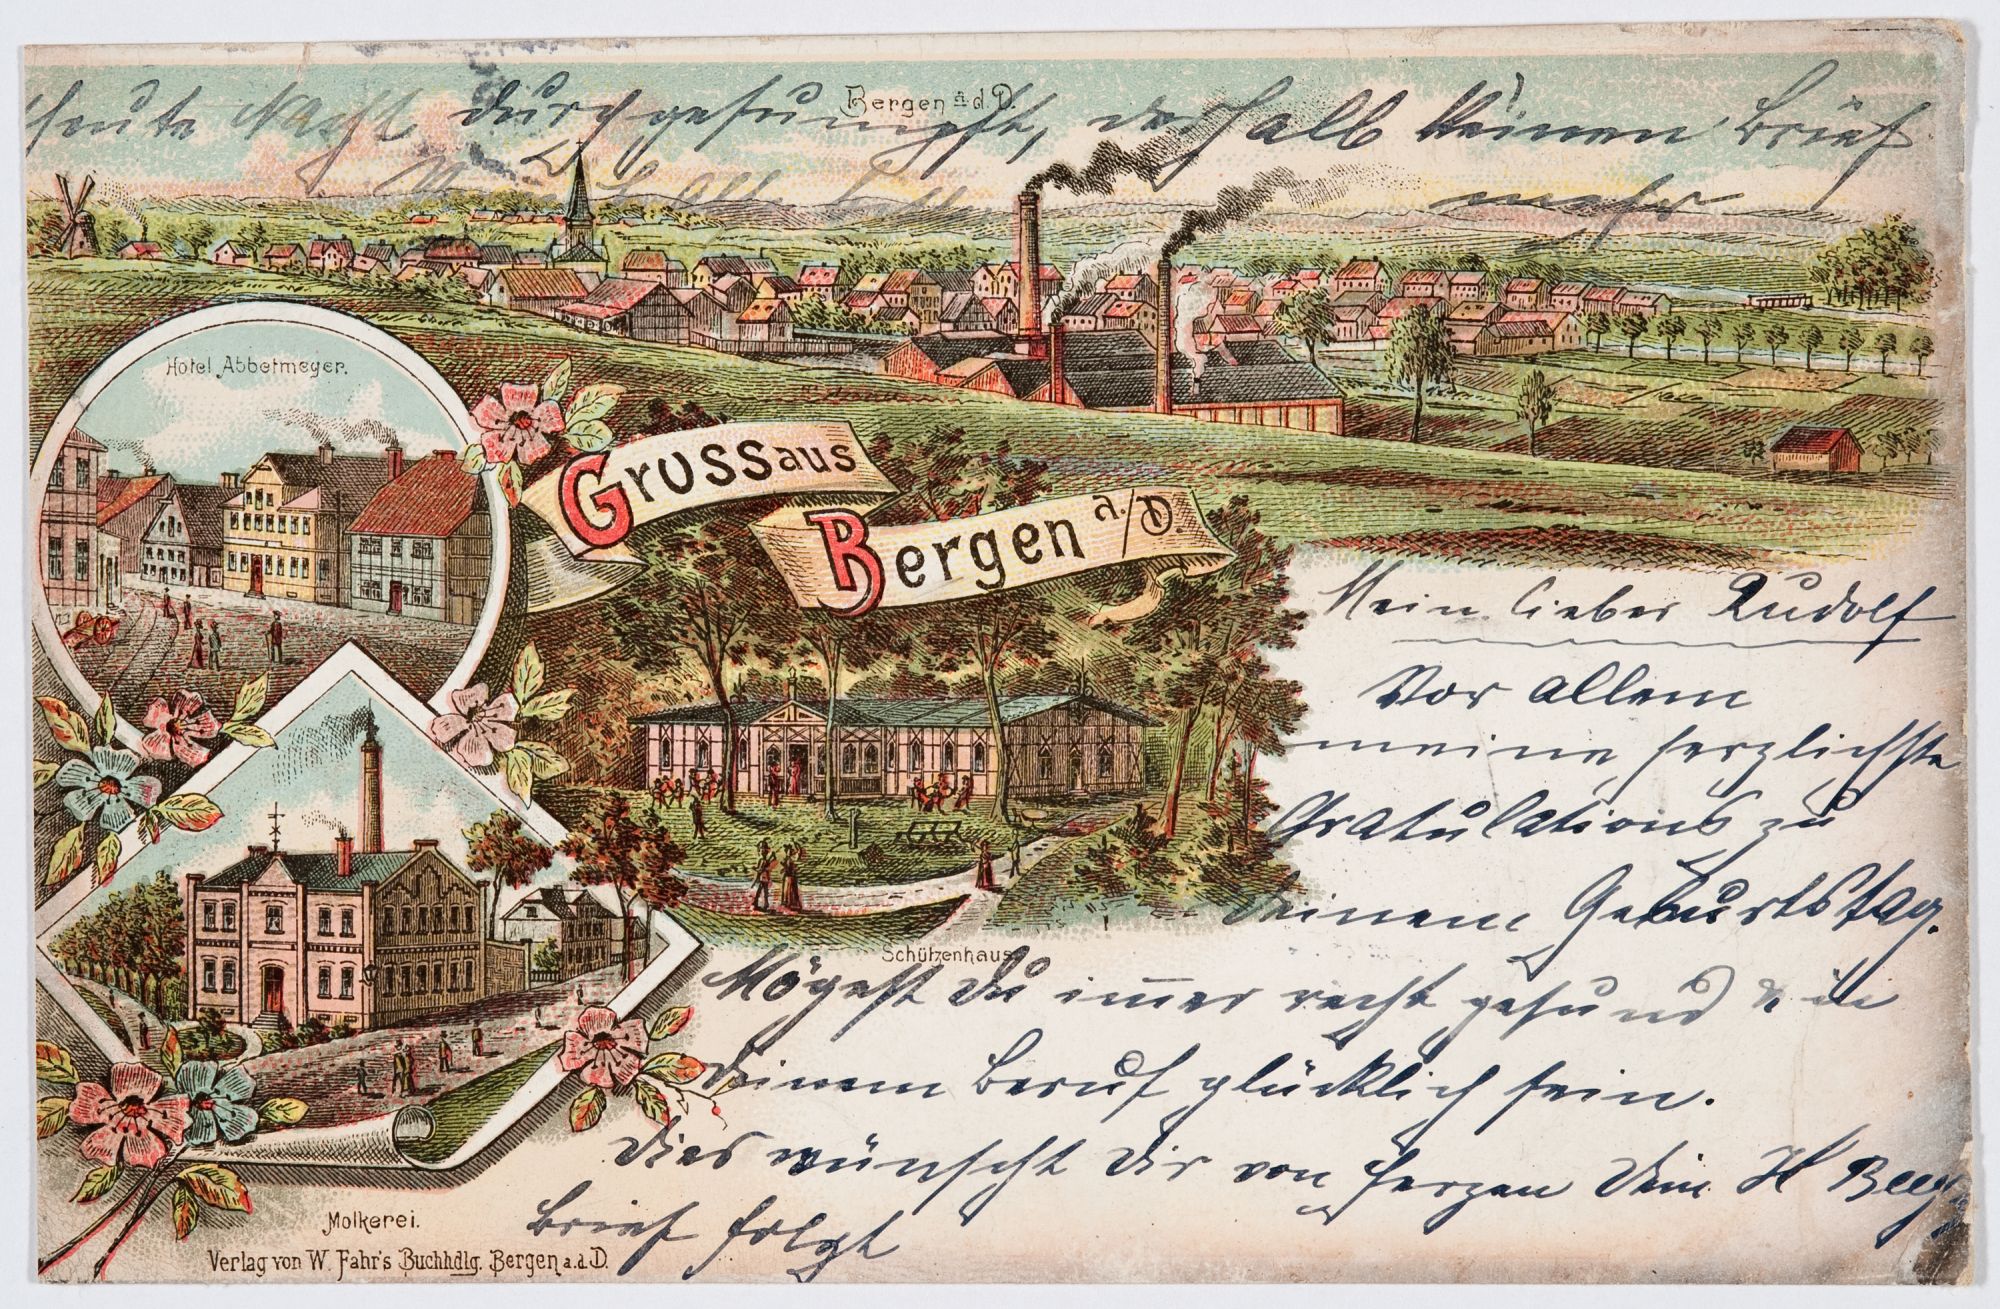 heute Nacht durchgesumpft, deshalb keinen Brief
mehr
Bergen a d D.
Hotel Abbetmeyer.
Gruss aus
Bergen a./D.
Schützenhaus
Molkerei.
Verlag von W. Fahr's Buchhdlg. Bergen a.d.D.
Mein lieber Rudolf
Vor allem
meine herzlichste
Gratulations zu
deinem Geburtstag.
Mögest Du im̅er recht gesund & in
deinem Beruf glücklich sein.
Dies wünscht Dir von Herzen Dein H
Brief folgt